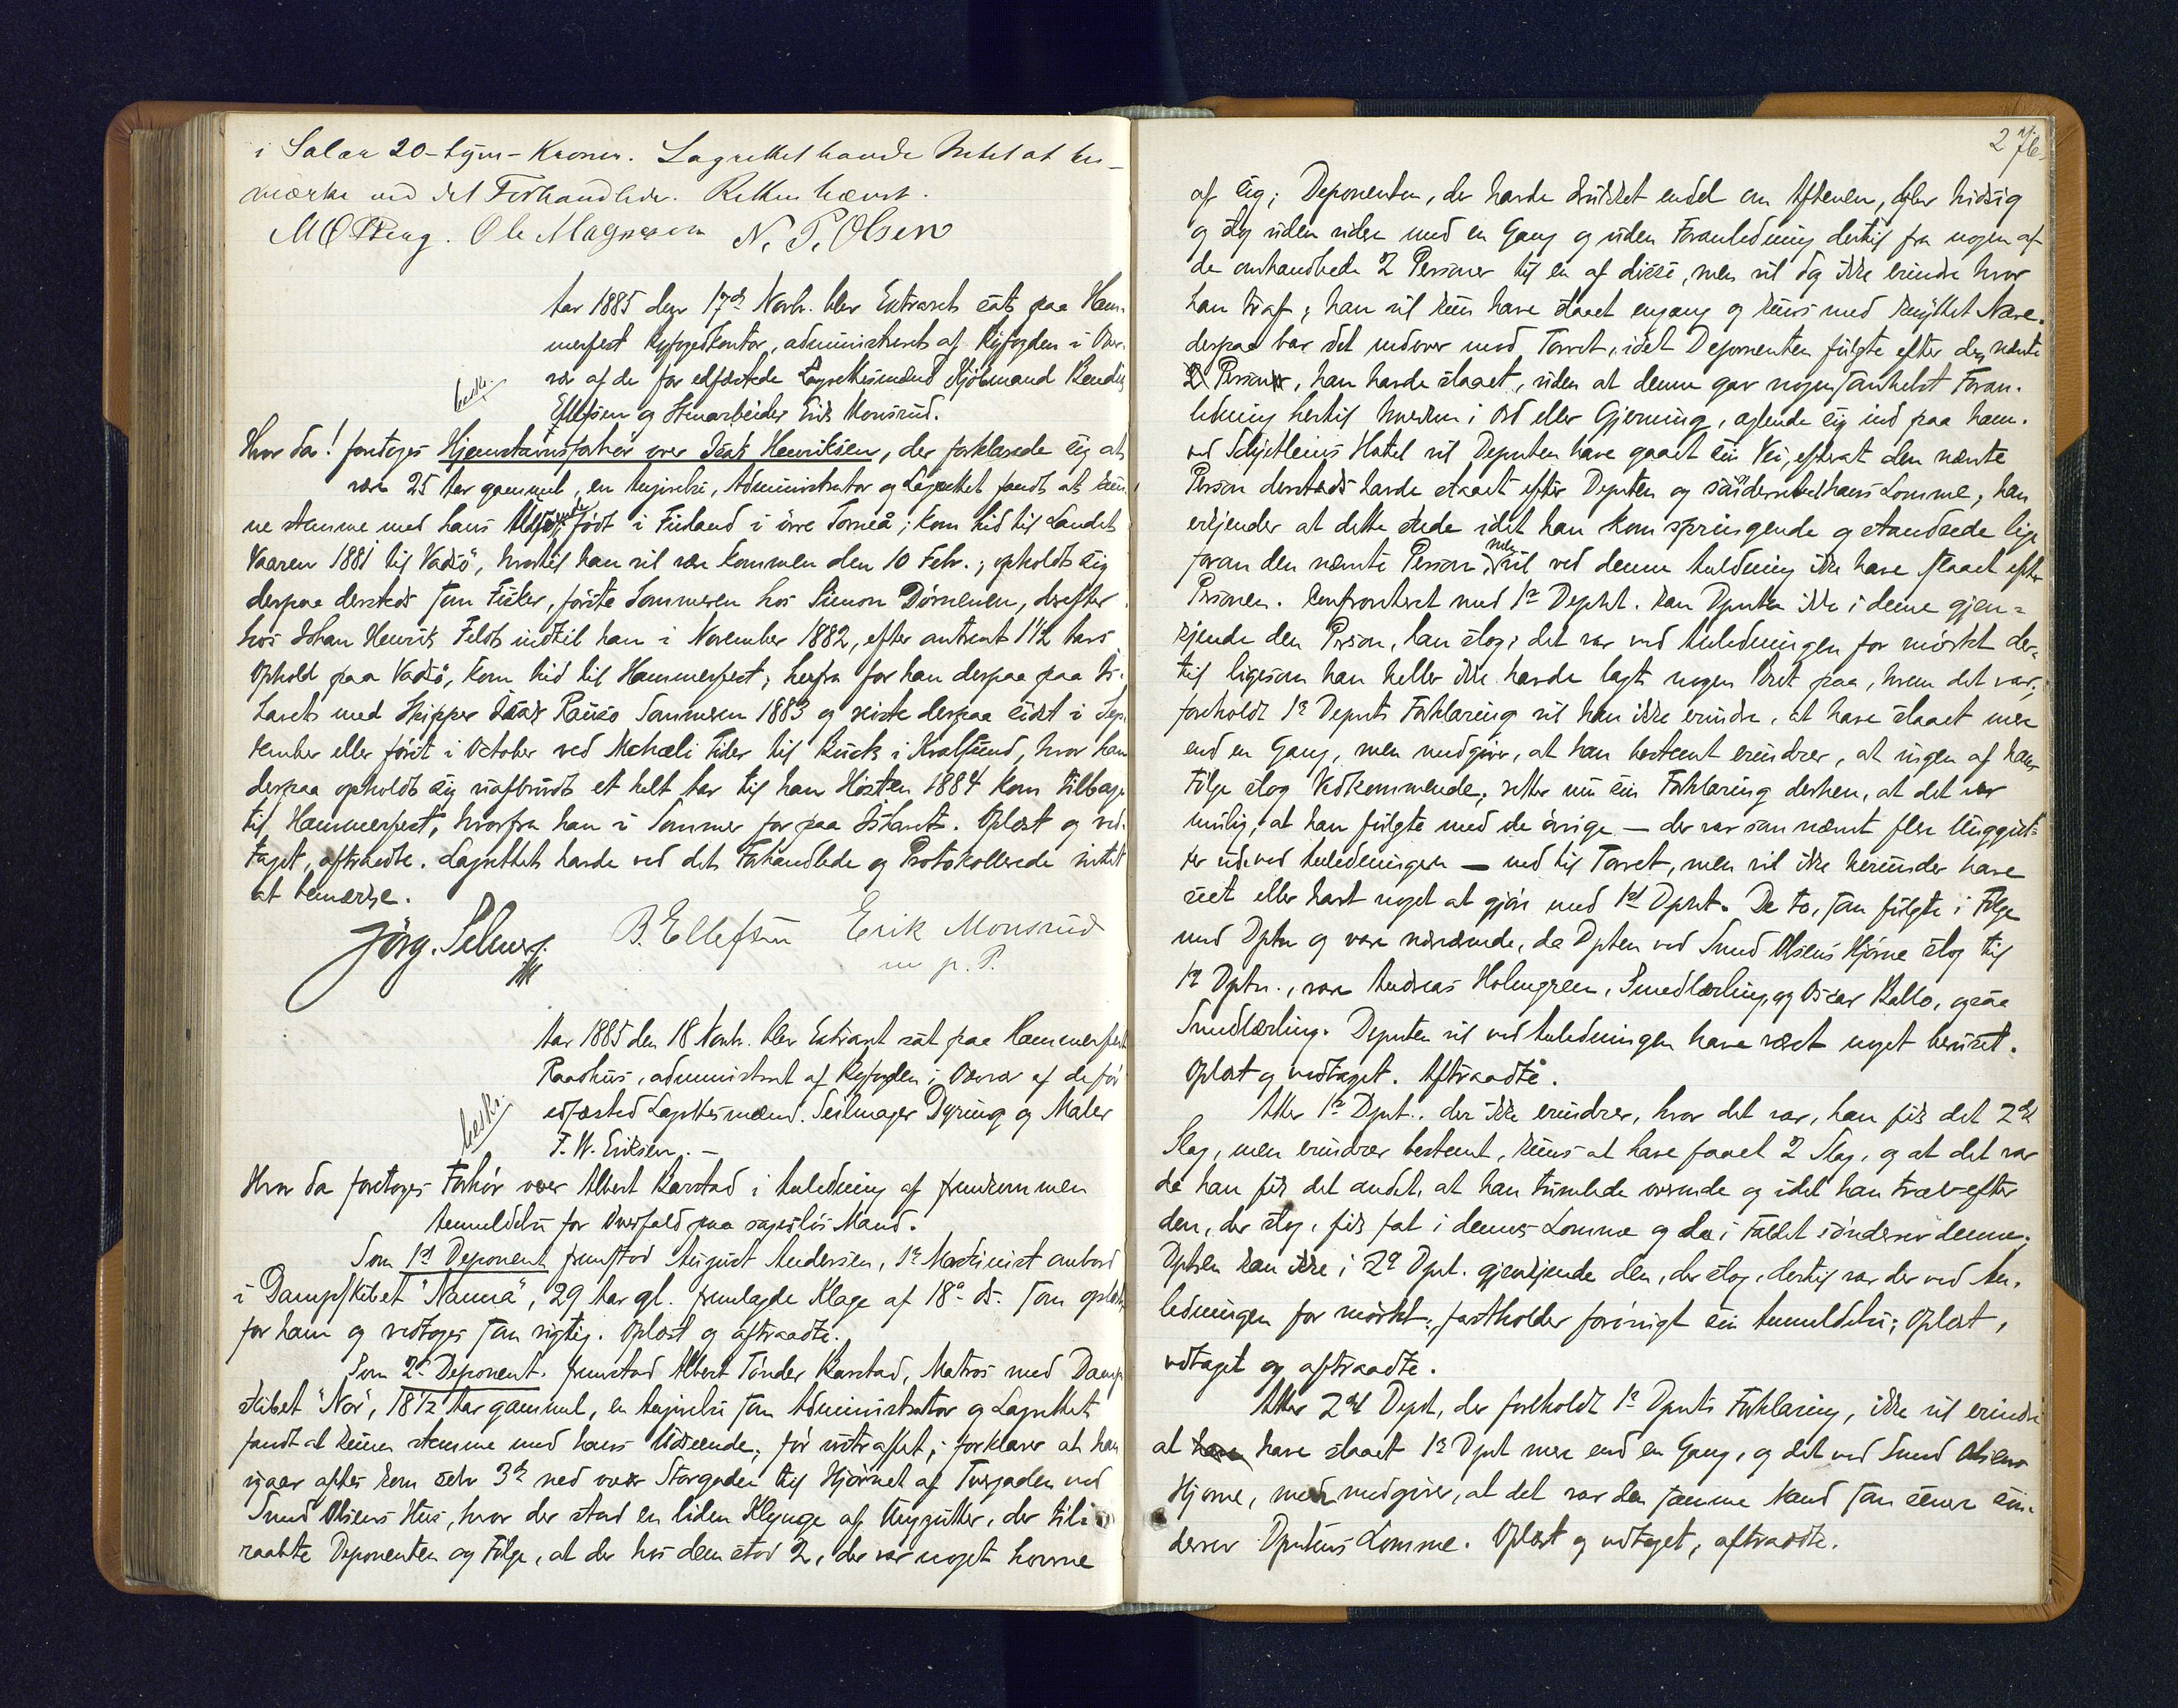 i Salær 20-tyve-Kroner. Lagrettet havde Intet at be-
mærke ved det Forhandlede. Retten hævet.
Ole Magnussen N. P. Olsen
Aar 1885 den 17de Novbr. blev Extraret sat paa Ham-
merfest Byfogedkontor, administreret af Byfogden i Over-
vær af de før edfæstede Lagrettesmænd Kjøbmand Bendix
Ellefsen og Stenarbeider Erik Monsrud.
besk.
Hvor da! foretoges Hjemstavnsforhør over Isak Henriksen, der forklarede sig at
være 25 Aar gammel, en Angivelse, Administrator og Lagrettet fandt at kun-
ne stemme med hans Udseende, født i Finland i övre Torneå; kom hid til Landet
Vaaren 1881 til Vadsö, hvortil han vil være kommen den 10 Febr.; opholdt sig
derpaa dersteds som Fisker, første Sommeren hos Simon Dørmenen, derefter
hos Johan Henrik Feldt indtil han i November 1882, efter omtrent 1 1/2 Aars
Ophold paa Vadsö, kom hid til Hammerfest; herfra for han derpaa paa Is-
havet med Skipper Isak Rauso Sommeren 1883 og reiste derpaa sidst i Sep-
tember eller først i October ved Michæli Tider til Kucks i Kvalsund, hvor han
derpaa opholdt sig uafbrudt et helt Aar til han Hösten 1884 kom tilbage
til Hammerfest, hvorfra han i Sommer for paa Ishavet. Oplæst og ved-
taget, aftraadte. Lagrettet havde ved det Forhandlede og Protokollerede intet
at bemærke.
Jörg. Selmer B. Ellefsen Erik Monsrud
m p. P.
Aar 1885 den 18 Novbr. blev Extraret sat paa Hammerfest
Raadhus, administreret af Byfogden i Overvær af de før
edfæsted Lagrettesmænd. Seilmager Dyring og Maler
F. W. Eriksen. -
besk.
Hvor da foretoges Forhør over Albert Karstad i Anledning af fremkommen
Anmeldelse for Overfald paa sagesløs Mand.
Som 1ste Deponent fremstod August Andersen, 1ste Maskinist ombord
i Dampskibet "Nanna", 29 Aar gl. fremlagde Klage af 18de ds. som oplæstes
for ham og vedtoges som rigtig. Oplæst og aftraadte.
Som 2den Deponent. fremstod Albert Tönder Karstad, Matros med Damp-
skibet "Nor", 18 1/2 Aar gammel, en Angivelse som Administrator og Lagrettet
fandt at kunne stemme med hans Udseende; før ustraffet; forklarer at han
igaar aftes kom selv 3die ned over Storgaden til Hjørnet af Tvergaden ved
Smed Olsens Hus, hvor der stod en liden Klynge af Unggutter, der til-
raabte Deponenten og Følge, at der hos dem stod 2, der var noget hovne
2
af sig; Deponenten, der havde drukket endel om Aftenen, blev hidsig
og slog uden videre med en Gang og uden Foranledning dertil fra nogen af
de omhandlede 2 Personer til en af disse, men vil dog ikke erindre hvor
han traf; han vil kun have slaaet engang og kuns med knyttet Næve.
derpaa bar det nedover mod Torvet, idet Deponenten fulgte efter den nævnte
Person, han havde slaaet, uden at denne gav nogensomhelst Foran-
ledning hertil hverken i Ord eller Gjerning, aglende sig ind paa ham.
ved Schjetleins Hotel vil Deponten have gaaet sin Vei, efterat den nævnte
Person dersteds havde slaaet efter Deponten og sönderrevet hans Lomme; han
erkjender at dette skede idet han kom springende og standsede lige
foran den nævnte Person, men vil ved denne Anledning ikke have slaaet efter
Personen. Confronteret med 1ste Depnt. kan Dpnten ikke i denne gjen-
kjende den Person, han slog; det var ved Anledningen for mörkt der-
til ligesom han heller ikke havde lagt nogen Vægt paa, hvem det var;
foreholdt 1ste Depnts Forklaring vil han ikke erindre, at have slaaet mere
end en Gang, men medgiver, at han bestemt erindrer, at ingen af hans
Følge slog Vedkommende, retter nu sin Forklaring derhen, at det var
mulig, at han fulgte med de øvrige — der var som nævnt flere Unggut-
ter ude ved Anledningen — ned til Torvet, men vil ikke herunder have
seet eller havt noget at gjöre med 1ste Dpnt. De to, som fulgte i Følge
med Dpten og vare nærværende, da Dpten ved Smed Olsens Hjørne slog til
1ste Dpten., vare Andreas Holmgreen, Smedlærling, og Oscar Ballo, ogsaa
Smedlærling. Deponten vil ved Anledningen have været noget beruset.
Oplæst og vedtaget. Aftraadte.
Atter 1ste Dpnt., der ikke erindrer, hvor det var, han fik det 2det
Slag, men erindrer bestemt, kuns at have faaet 2 Slag, og at det var
da han fik det andet, at han tumlede overende og idet han trev efter
den, der slog, fik fat i dennes Lomme og da i Faldet sönderrev denne;
Dpten kan ikke i 2den Dpnt. gjenkjende den, der slog, dertil var der ved An-
ledningen for mörkt; fastholder forövrigt sin Anmeldelse; Oplæst,
vedtaget og aftraadte.
Atter 2det Depnt, der foreholdt 1ste Dpnts Forklaring, ikke vil erindre
at have slaaet 1ste Dpnt mere end en Gang, og det ved Smed Olsens
Hjørne, men medgiver, at det var den samme Mand som senere sön-
derrev Dpntens Lomme. Oplæst og vedtaget, aftraadte.